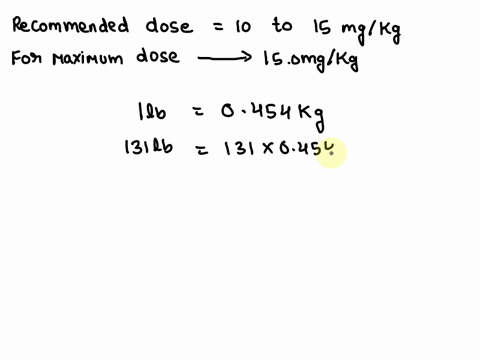 Recommended dose = 10 to 15 mg/Kg
For Maximum dose ⟶ 15.0mg/Kg
1lb = 0.454 Kg
131lb = 131 × 0.454